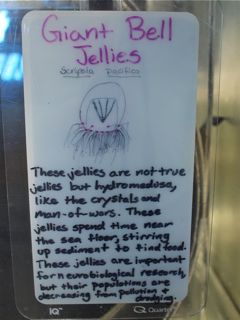 Giant Bell
Jellies
Scripsia pacifica
These jellies are not true
jellies but hydromedusa,
like the crystals and
man-of-wars. These
jellies spend time near
the sea floor, stirring
up sediment to find food.
These jellies are important
for neurobiological research,
but their populations are
decreasing from pollution &
IQ™
Quartet